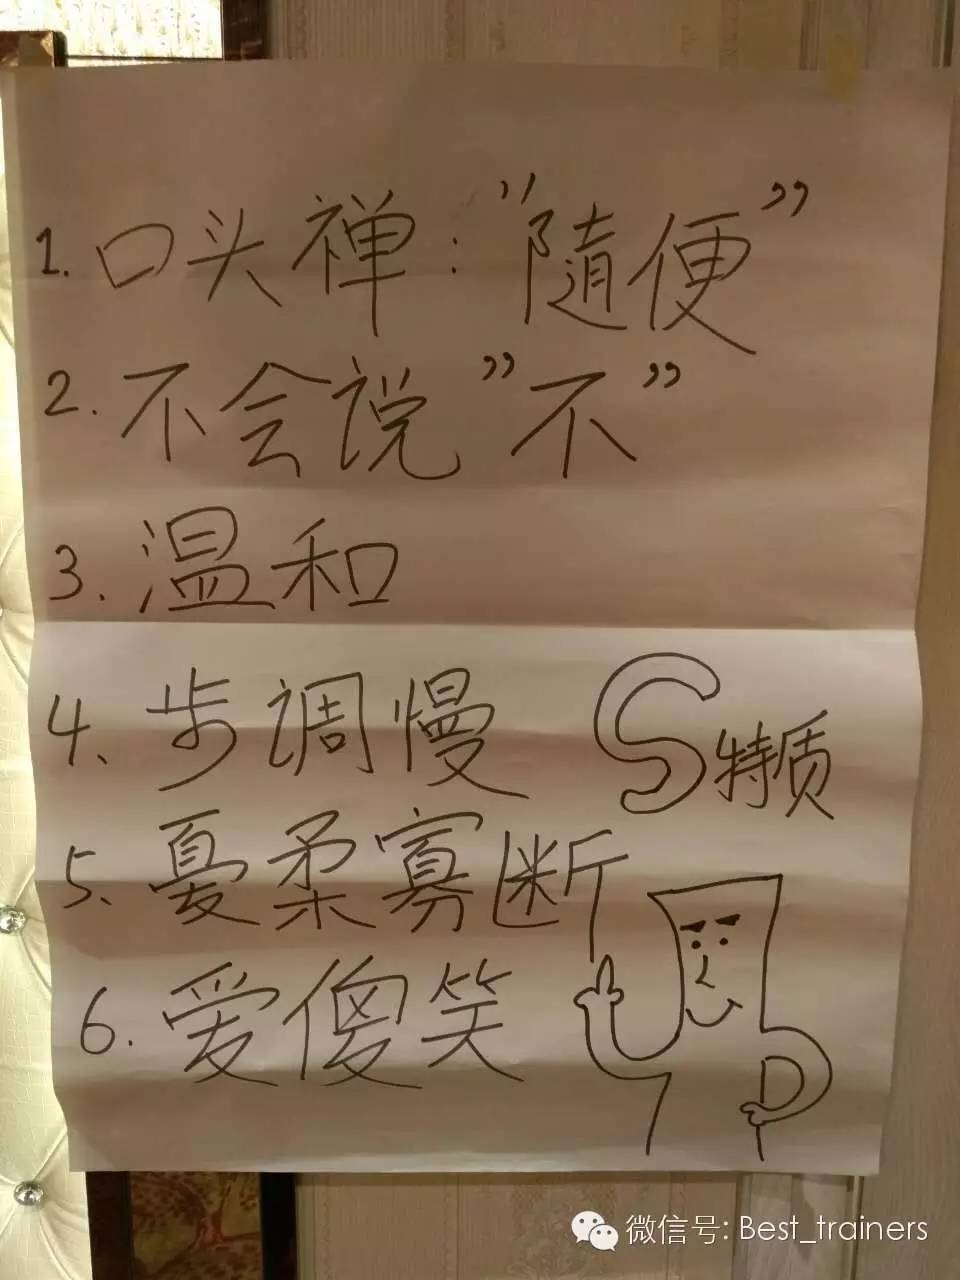 1. 口头禅："随便”
2. 不会说”不”
3. 温和
4、步调慢
S特质
5、憂柔寡断
6. 爱傻笑
微信号: Best_trainers